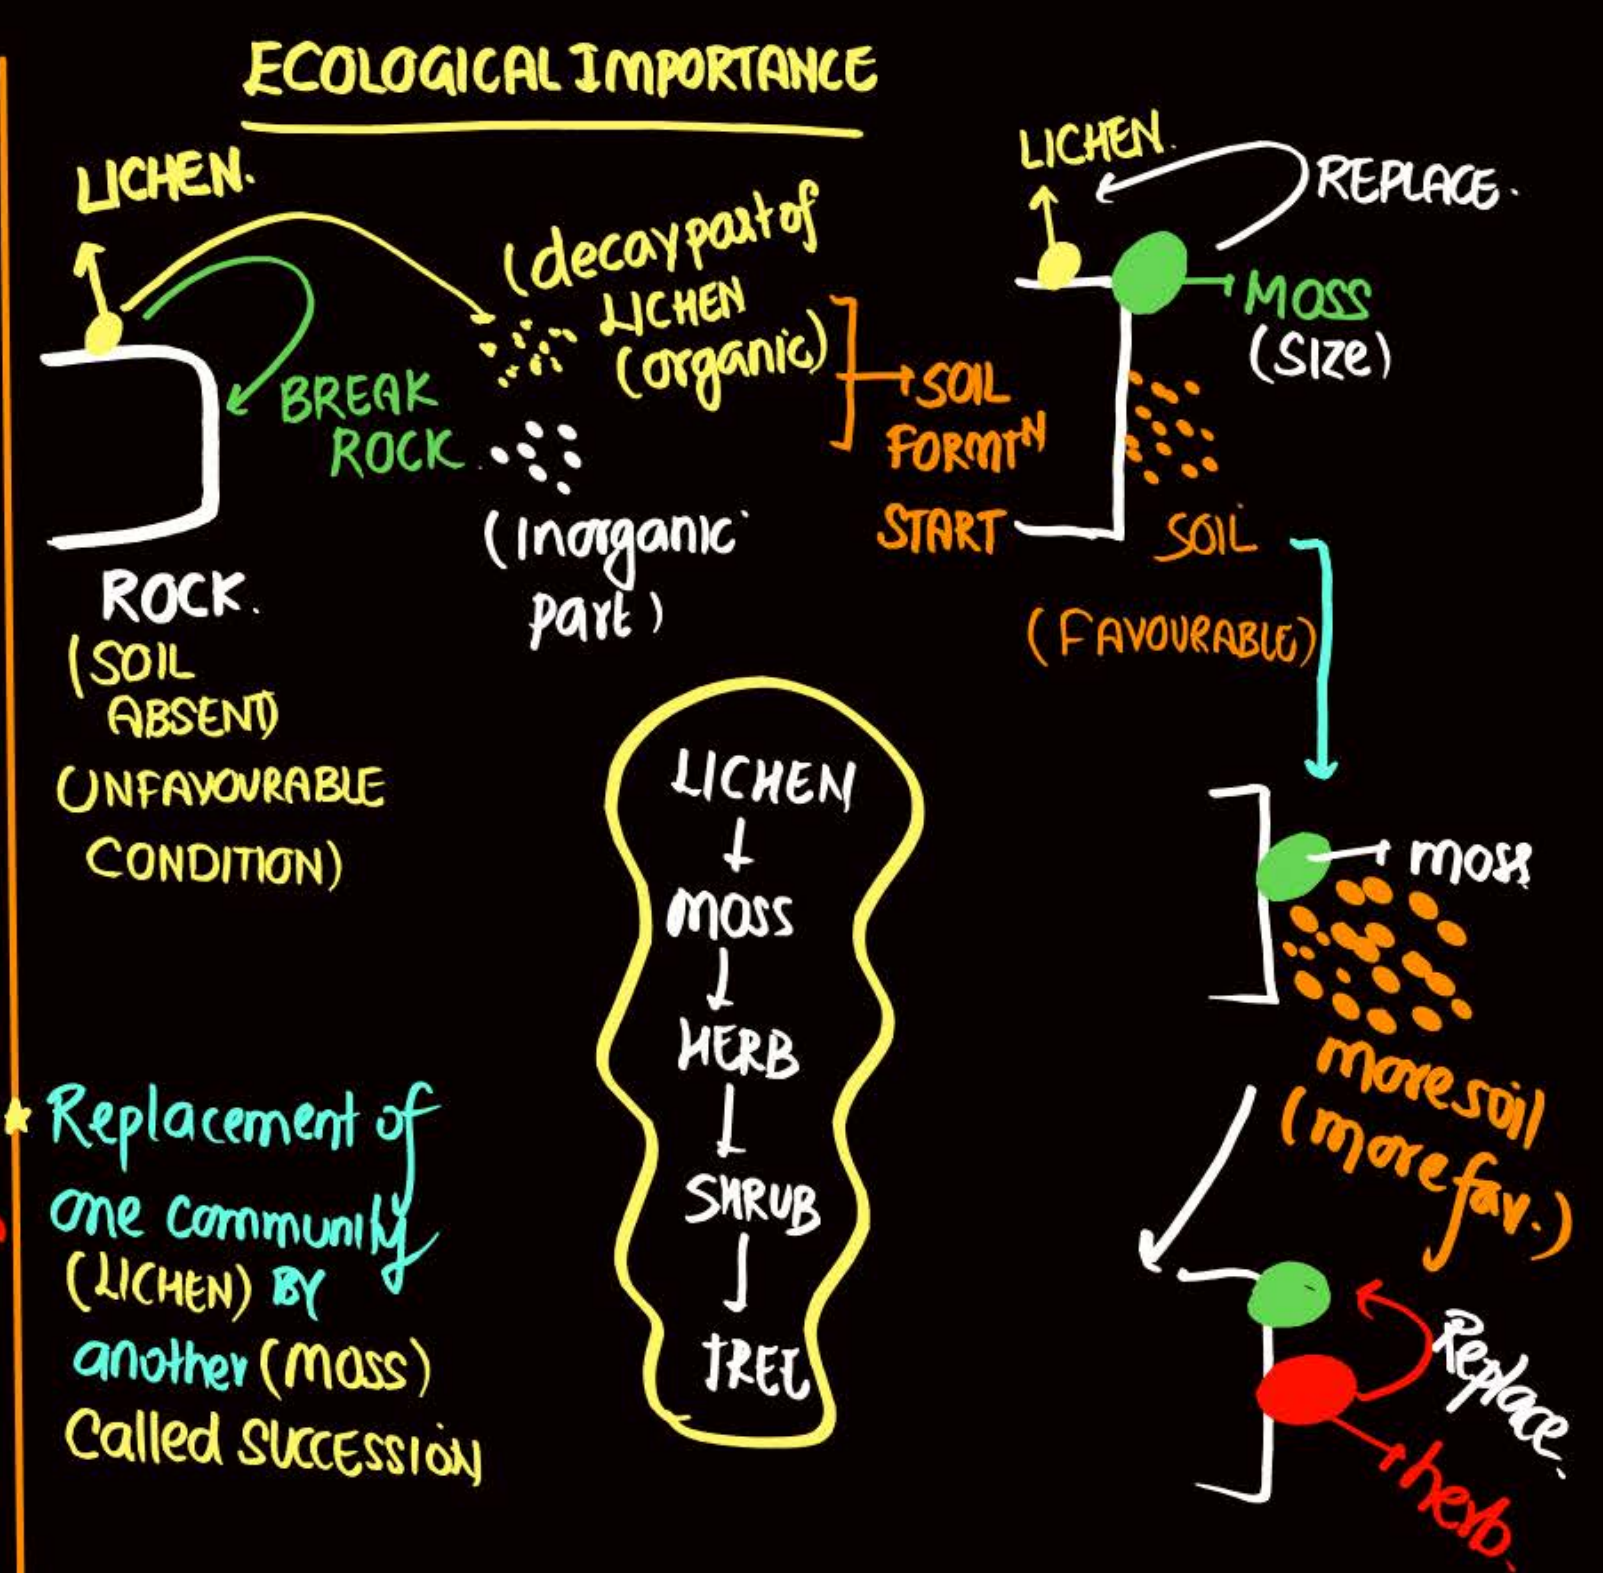 ECOLOGICAL IMPORTANCE
LICHEN.
BREAK
ROCK
ROCK.
(SOIL
ABSENT)
UNFAVOURABLE
CONDITION)
(decay part of
LICHEN
(organic)
(Inorganic
part)
SOIL
FORMTN
START
LICHEN.
REPLACE.
MOSS
(SIZE)
SOIL
(FAVOURABLE)
moss
more soil
(more fav.)
Replace.
herb.
LICHEN
MOSS
HERB
SHRUB
TREE
Replacement of
one community
(LICHEN) BY
another (MOSS)
Called SUCCESSION